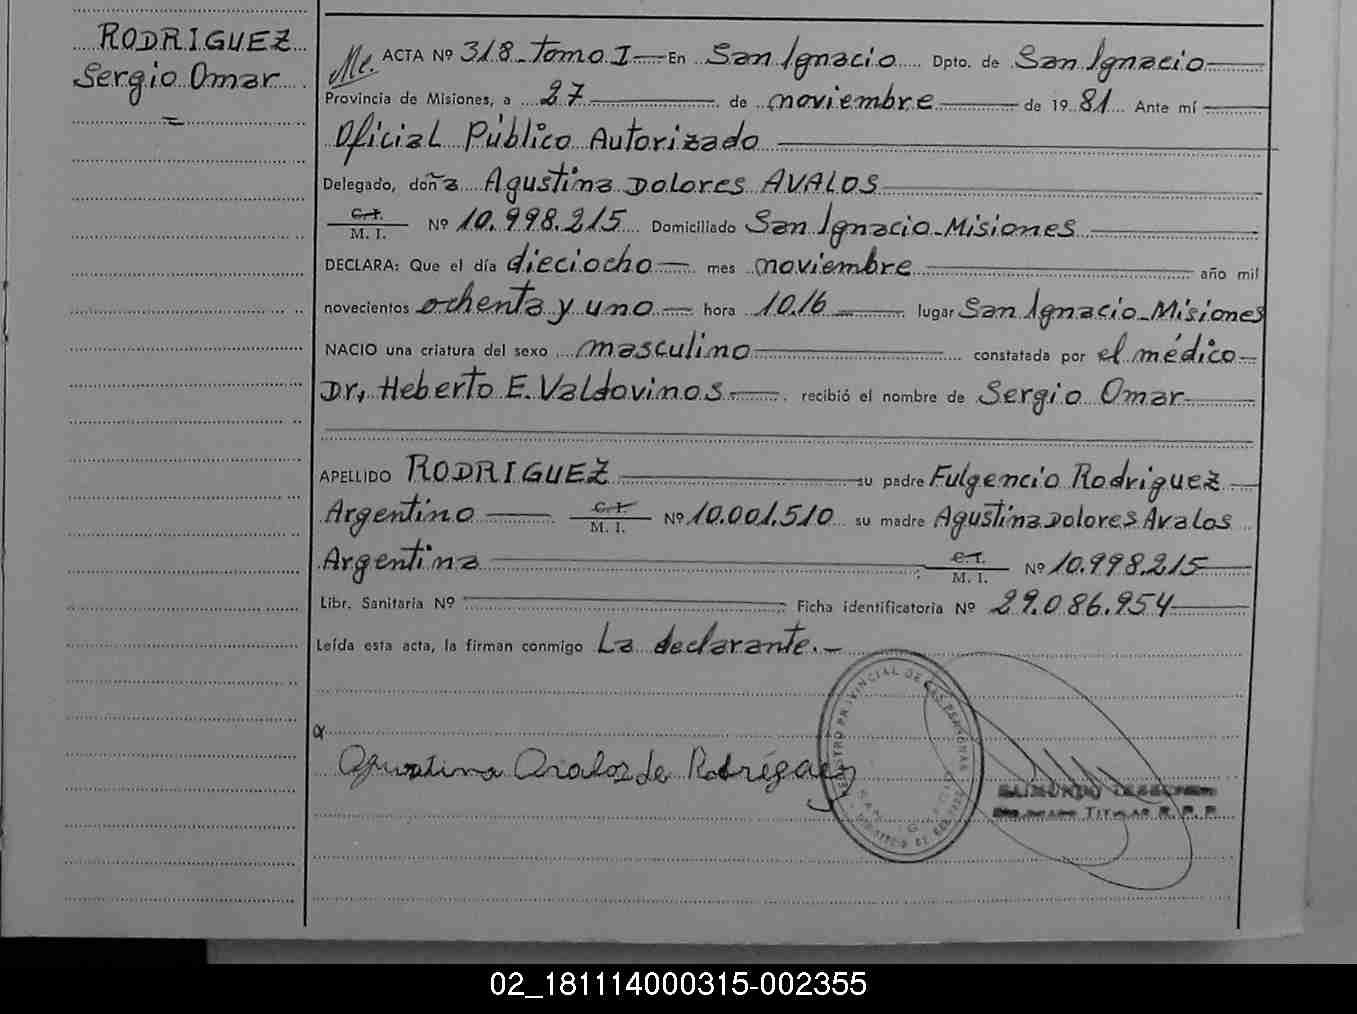 RODRIGUEZ
Sergio Omar
ACTA Nº 318 - Tomo I — En San Ignacio Dpto. de San Ignacio
Provincia de Misiones, a 27 de noviembre de 1981 Ante mí
Oficial Público Autorizado
Delegado, doña Agustina Dolores AVALOS
C.I. / M. I. Nº 10.998.215 Domiciliado San Ignacio - Misiones
DECLARA: Que el día dieciocho — mes noviembre año mil
novecientos ochenta y uno — hora 10.16 lugar San Ignacio - Misiones
NACIO una criatura del sexo masculino constatada por el médico
Dr. Heberto E. Valdovinos recibió el nombre de Sergio Omar
APELLIDO RODRIGUEZ su padre Fulgencio Rodriguez
Argentino C.I. / M. I. Nº 10.001.510 su madre Agustina Dolores Avalos
Argentina C.I. / M. I. Nº 10.998.215
Libr. Sanitaria Nº Ficha identificatoria Nº 29.086.954
Leída esta acta, la firman conmigo La declarante. -
Agustina Avalos de Rodríguez
REGISTRO PROVINCIAL DE LAS PERSONAS
SAN IGNACIO
RAIMUNDO
TITULAR R. P. P.
02_181114000315-002355